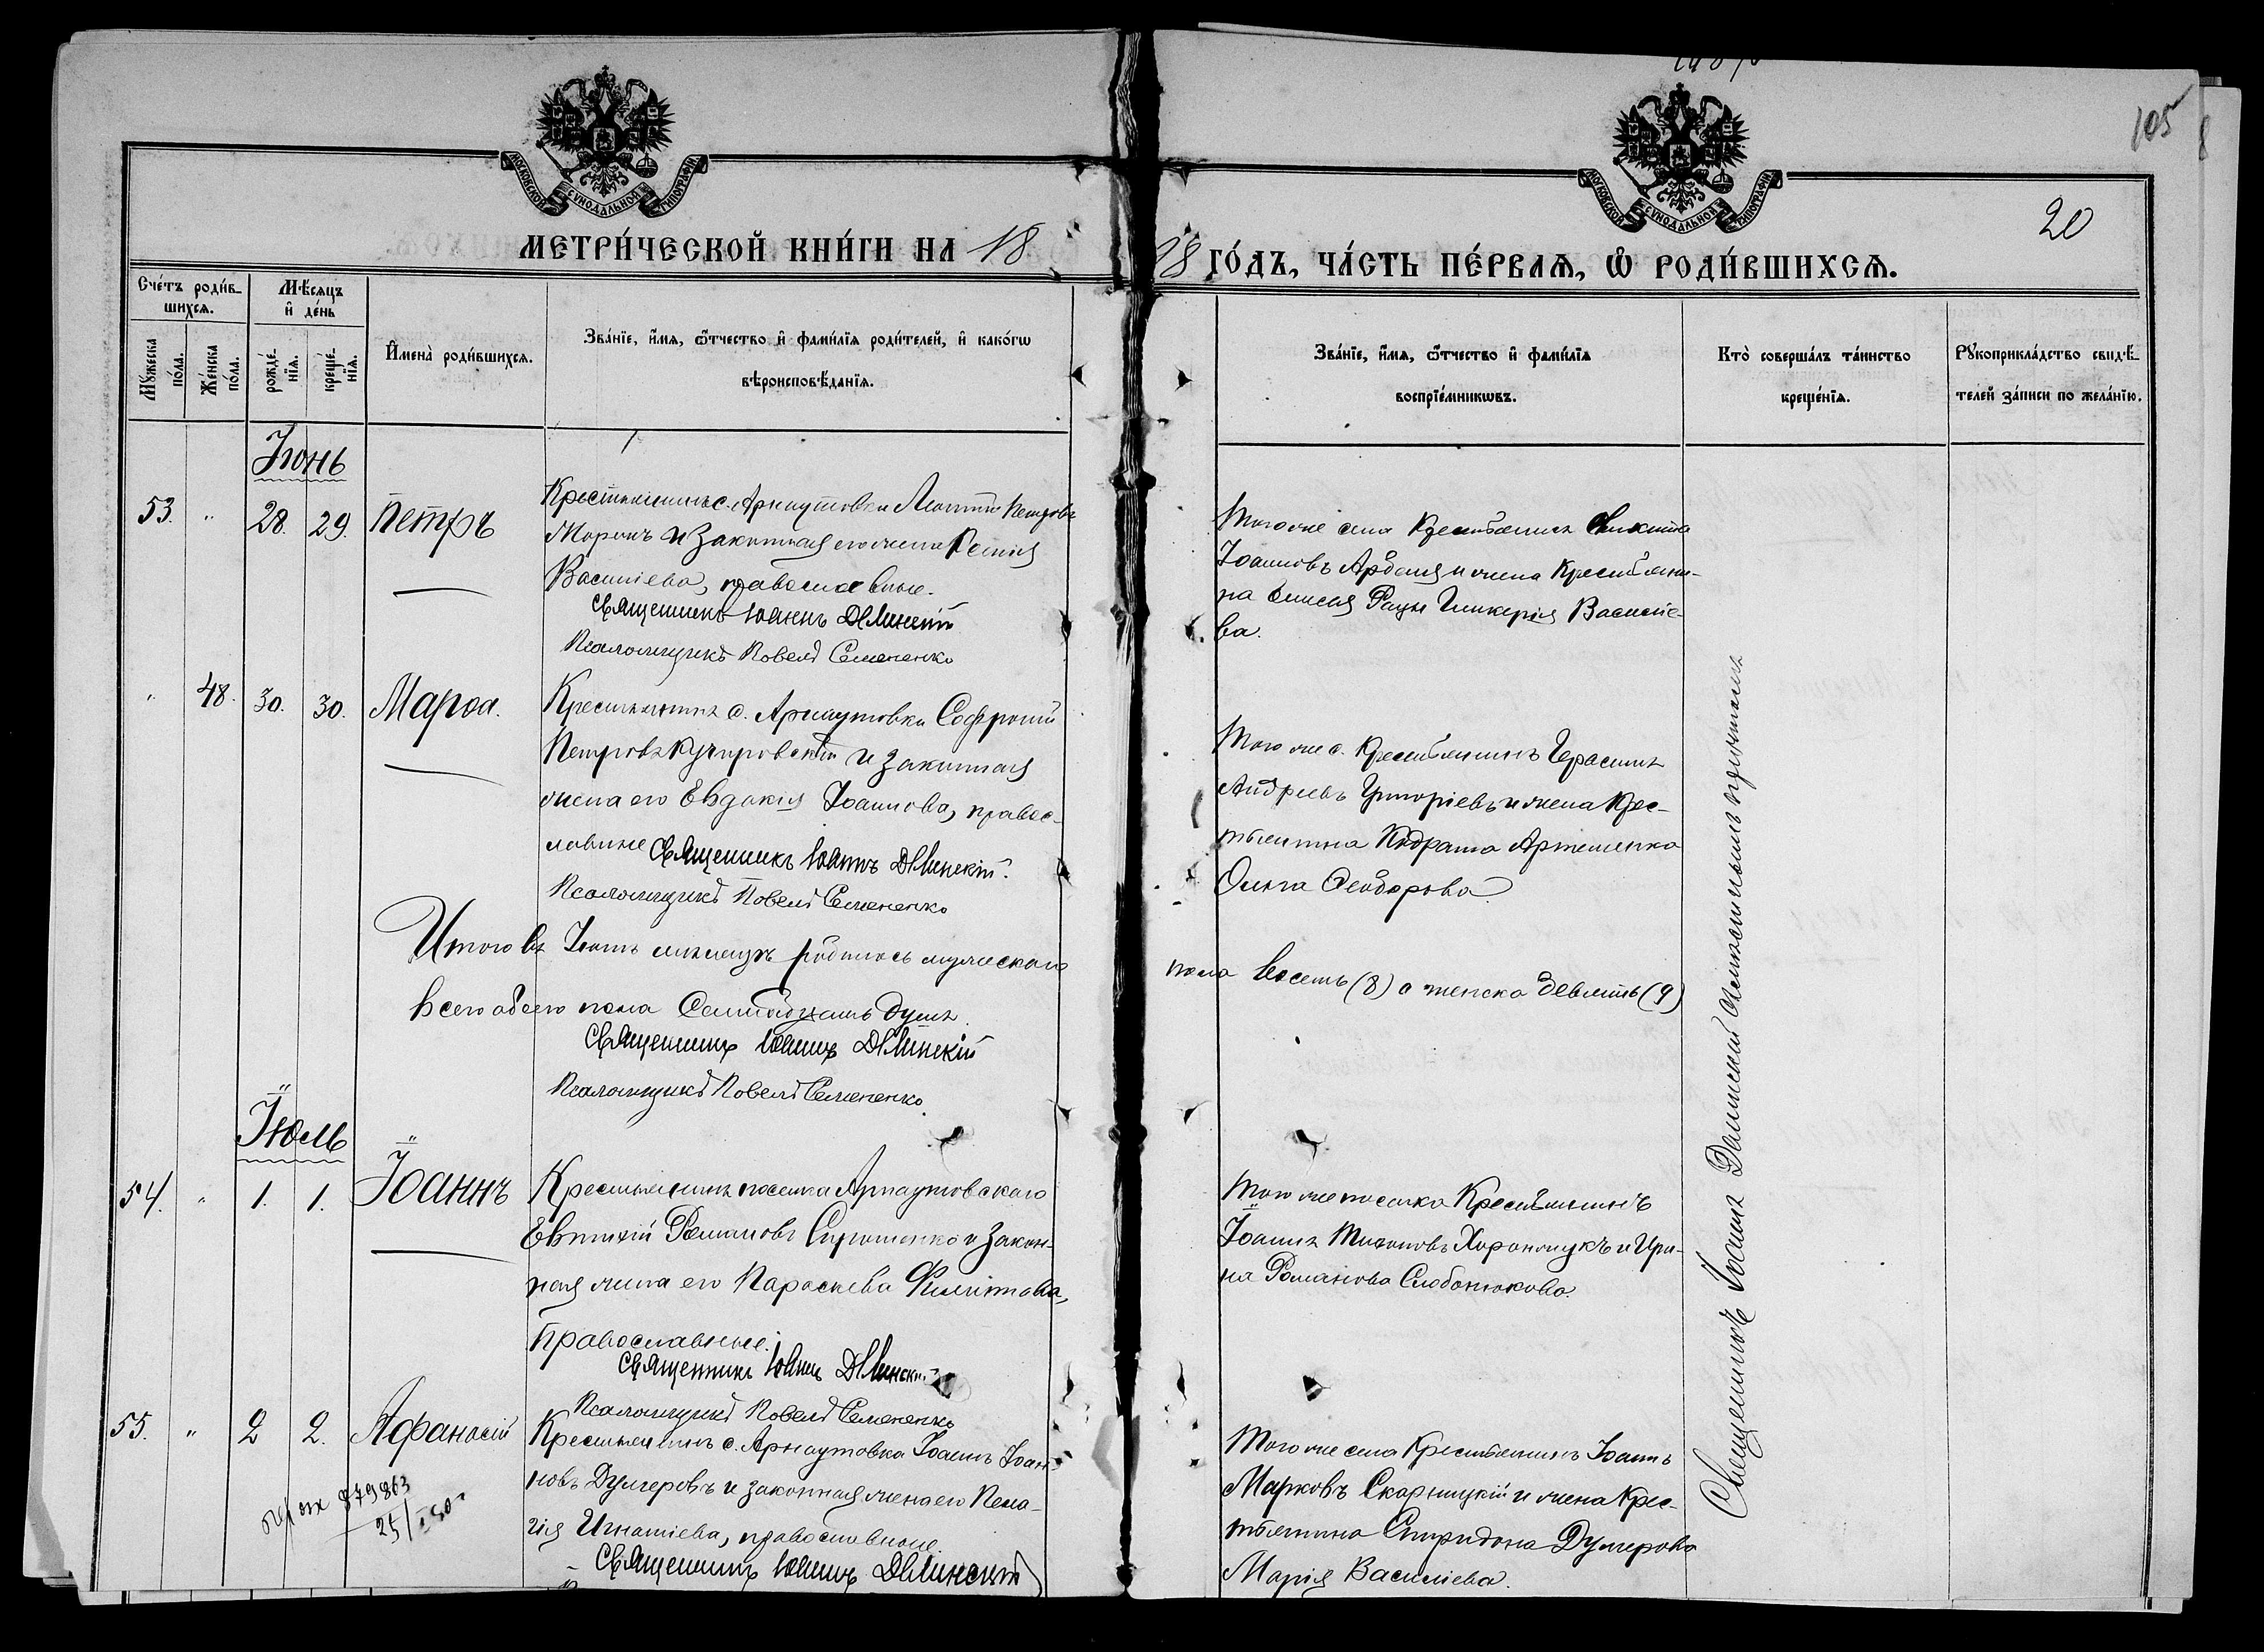 105
20
МОСКОВСКОЙ СѴНОДАЛЬНОЙ ТИПОГРАФІИ
МОСКОВСКОЙ СѴНОДАЛЬНОЙ ТИПОГРАФІИ
МЕТРИ́ЧЕСКОЙ КНИ́ГИ НА 18
98 ГО́ДЪ, ЧА́СТЬ ПЕ́РВАѦ, Ѡ҆ РОДИ́ВШИХСѦ.
Сче́тъ роди́в-
шихсѧ.
Мѣ́сѧцъ
и҆ де́нь
Мꙋ́жеска
по́ла.
Же́нска
по́ла.
рожде́-
нїѧ.
креще́-
нїѧ.
И҆мена̀ роди́вшихсѧ.
Зва́нїе, и҆́мѧ, ѻ҆́тчество и҆ фами́лїѧ роди́телей, и҆ како́гѡ
вѣроисповѣ́данїѧ.
Зва́нїе, и҆́мѧ, ѻ҆́тчество и҆ фами́лїѧ
воспрїе́мникѡвъ.
Кто̀ соверша́лъ та́инство
креще́нїѧ.
Рꙋкоприкла́дство свидѣ́-
телей за́писи по жела́нїю.
Іюнь
53. " 28. 29. Петръ
Крестьянинъ с. Арнаутовки Леонтій Петровъ
Моронъ и законная его жена Ксенія
Василіева, православные.
Священникъ Іоаннъ Длинскій
Псаломщикъ Повелъ Семененко
Того же села Крестьянинъ
Іоанновъ и жена Крестьяни-
на Гликерія Василіе-
ва.
" 48. 30. 30. Марѳа.
Крестьянинъ с. Арнаутовки Софроній
Петровъ и законная
жена его Евдокія Іоаннова, правос-
лавные Священникъ Іоаннъ Длинскій
Псаломщикъ Повелъ Семененко
Того же с. Крестьянинъ Герасимъ
Андреевъ Григоріевъ и жена Крес-
тьянина Кодрата Артеменко
Ольга Ѳеодорова
Итого въ Іюнь мѣсяцъ родилось мужеского
пола восемь (8) а женска девять (9)
всего обоего пола Семнадцать душъ.
Священникъ Іоаннъ Длинскій
Псаломщикъ Повелъ Семененко
Іюль
54. " 1. 1. Іоаннъ
Крестьянинъ поселка Арнаутовскаго
Евтихій Романовъ Сиротенко и закон-
ная жена его Параскева Филиппова,
Православные.
Священникъ Іоаннъ Длинскій
Псаломщикъ Повелъ Семененко
Того же поселка Крестьянинъ
Іоаннъ и Ири-
на Романова Слободнюкова.
55. " 2 2. Афанасій
Крестьянинъ с. Арнаутовка Іоаннъ Іоан-
новъ Дулгеровъ и законная жена его Пела-
гія Игнатіева, православные.
Священникъ Іоаннъ Длинскій
879863
25/
Того же села Крестьянинъ Іоаннъ
Марковъ Скарницкій и жена Крес-
тьянина Спиридона Дулгерова
Марія Василіева.
Священникъ Іоаннъ Длинскій